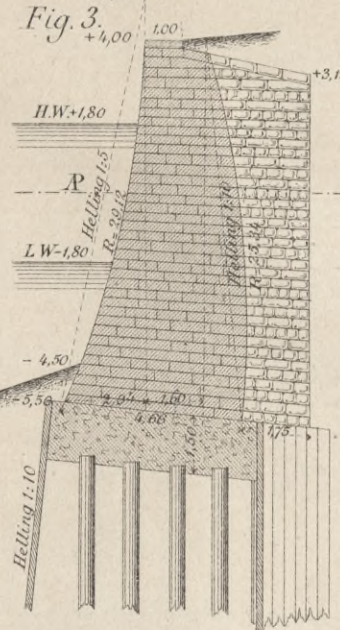 Fig. 3.
+4,00
1,00
+3,1
H.W.+1,80
AP
Helling 1:5
R=29,12
Helling 1:10
R=25,34
L W-1,80
- 4,50
-5,50
1,60
4,66
1,50
1,75
Helling 1:10